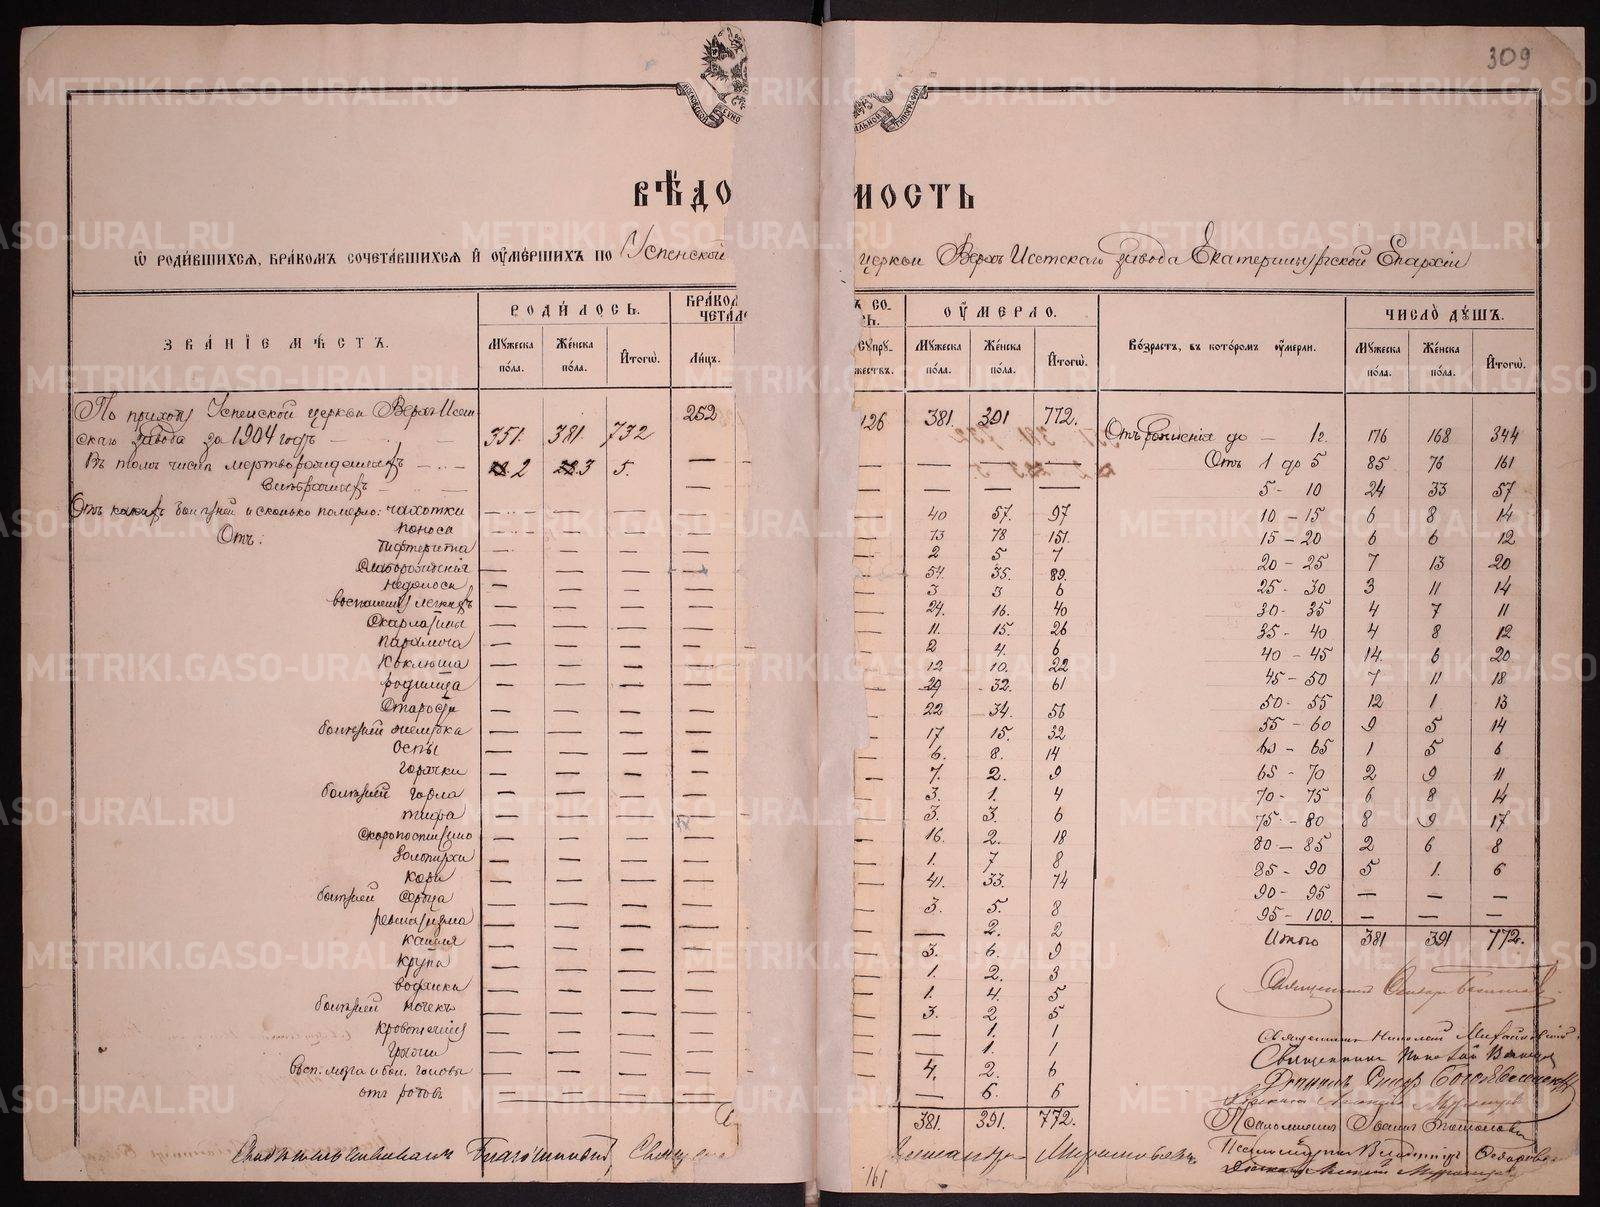 309
ВѢДО МОСТЬ
Ѡ РОДИ́ВШИХСЯ, БРА́КОМЪ СОЧЕТА́ВШИХСЯ И҆ ОУ҆МЕ́РШИХЪ ПО Успенской церкви Верхъ Исетскаго завода Екатеринбургской Епархіи
ЗВА́НІЕ МѢ́СТЪ. РОДИ́ЛОСЬ. БРА́КОМ ЧЕТАЛ Ъ СО- СЬ. ОУ҆́МЕРЛО. Во́зрастъ, въ кото́ромъ оу҆́мерли. ЧИСЛО̀ ДУ́ШЪ.
Му́жеска по́ла. Же́нска по́ла. И҆тогѡ̀. Ли́цъ. супру- жествъ. Му́жеска по́ла. Же́нска по́ла. И҆тогѡ̀. Му́жеска по́ла. Же́нска по́ла. И҆тогѡ̀.
По приходу Успенской церкви Верхъ-Исет- 252 126 381. 391 772.
скаго завода за 1904 годъ 351. 381. 732 Отъ рожденія до — 1 г. 176 168 344
Въ томъ числѣ мертворожденныхъ 2 3 5. — — — — — Отъ 1 до 5 85 76 161
— — — — — 5 - 10 24 33 57
Отъ какихъ болѣзней и сколько померло: чахотки 40 57. 97 10 - 15 6 8 14
Отъ: поноса 73 78 151. 15 - 20 6 6 12
дифтерита 2 5 7 20 - 25 7 13 20
слаборожденія 54. 35. 89. 25 - 30 3 11 14
недоноска 3 3 6 30 - 35 4 7 11
воспаленія легкихъ 24. 16. 40 35 - 40 4 8 12
скарлатины 11. 15. 26 40 - 45 14. 6 20
паралича 2 4. 6 45 - 50 7 11 18
коклюша 12 10. 22 50 - 55 12 1 13
родимца 29 32. 61 55 - 60 9 5 14
старости 22 34. 56 60 - 65 1 5 6
болѣзней желудка 17 15. 32 65 - 70 2 9 11
оспы 6. 8. 14 70 - 75 6 8 14
горячки 7. 2. 9 75 - 80 8 9 17
болѣзней горла 3. 1. 4 80 - 85 2 6 8
тифа 3. 3. 6 85 - 90 5 1. 6
скоропостижно 16. 2. 18 90 - 95 — — —
золотухи 1. 7 8 95 - 100. — — —
кори 41. 33. 74 Итого 381 391 772.
болѣзней сердца 3. 5. 8
ревматизма — 2. 2
кашля 3. 6. 9
крупа 1. 2. 3
водянки 1. 4. 5
болѣзней почекъ 3. 2 5
кровотеченія — 1. 1
грыжи — 1. 1
восп. мозга и бол. головы 4. 2. 6
отъ родовъ — 6. 6
381. 391. 772.
Священникъ
Священникъ Николай
Священникъ Николай
Діаконъ
Псаломщикъ Іоаннъ
Псаломщикъ Владиміръ
161
METRIKI.GASO-URAL.RU